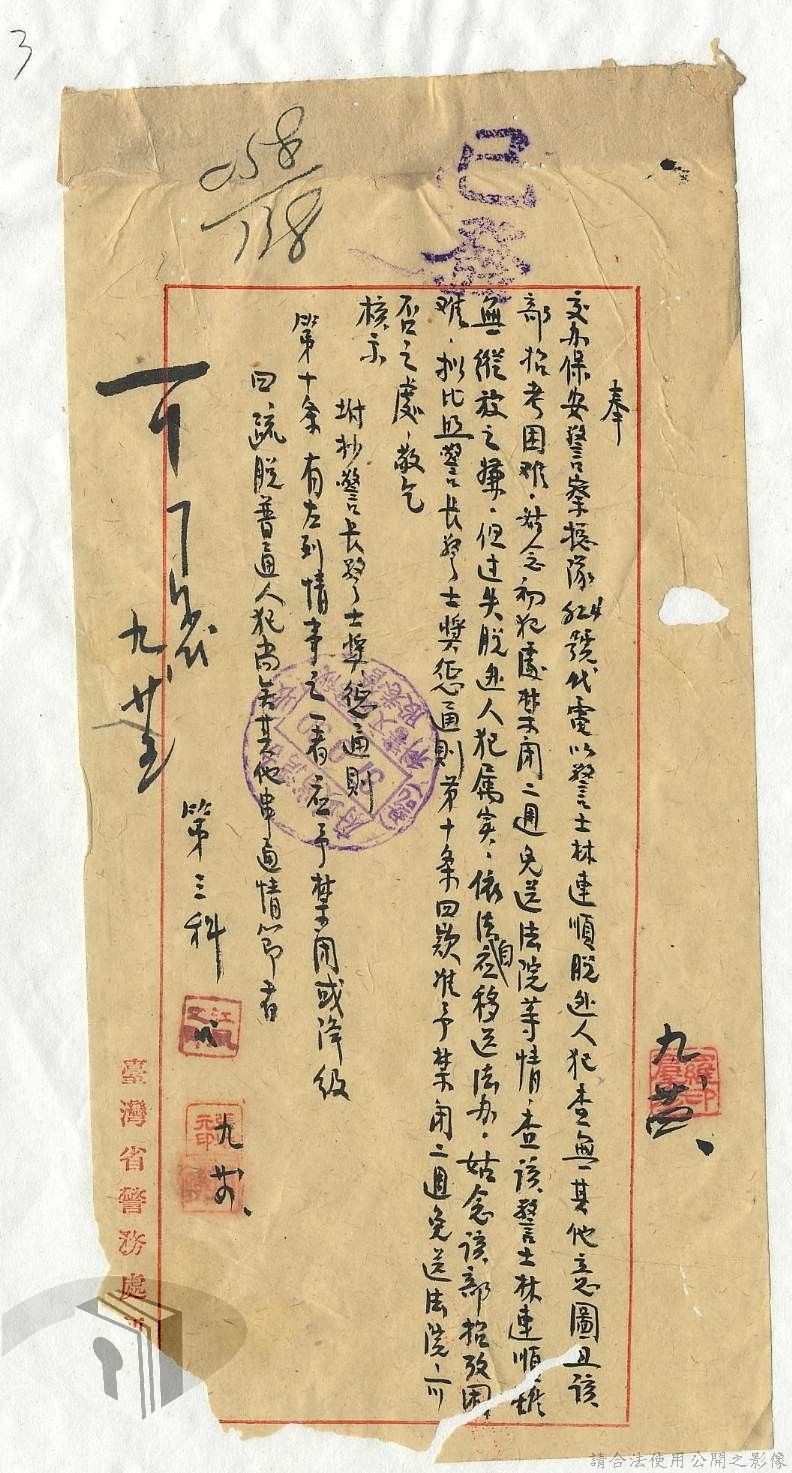 3
058/138
已發
奉
交办保安警察總隊代電以警士林連順脫逃人犯查無其他意圖且該
部招考困难，姑念初犯處禁閉二週免送法院等情，查該警士林連順雖
無縱放之嫌，但过失脫逃人犯属实，依法自应移送法办，姑念該部招致困
难，拟比照警長警士獎懲通則第十条四款准予禁閉二週免送法院，可
否之處，敬乞
核示
附抄警長警士獎懲通則
第十条 有左列情事之一者应予禁閉或降级
四、疏脫普通人犯尚無其他串通情節者
第三科
九、廿
可
九、廿五
臺灣省警務處
請合法使用公開之影像